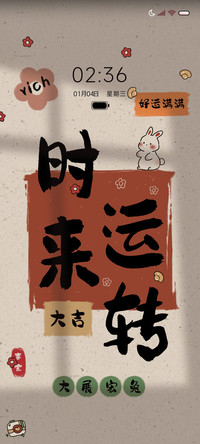 02:36
01月04日 星期三
rich
好运满满
时来
运转
大吉
大展宏兔